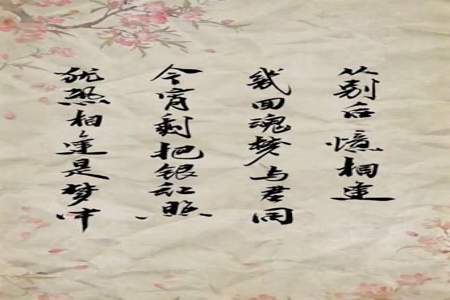 从别后憶相逢
幾回魂梦与君同
今宵剩把银釭照
犹恐相逢是梦中